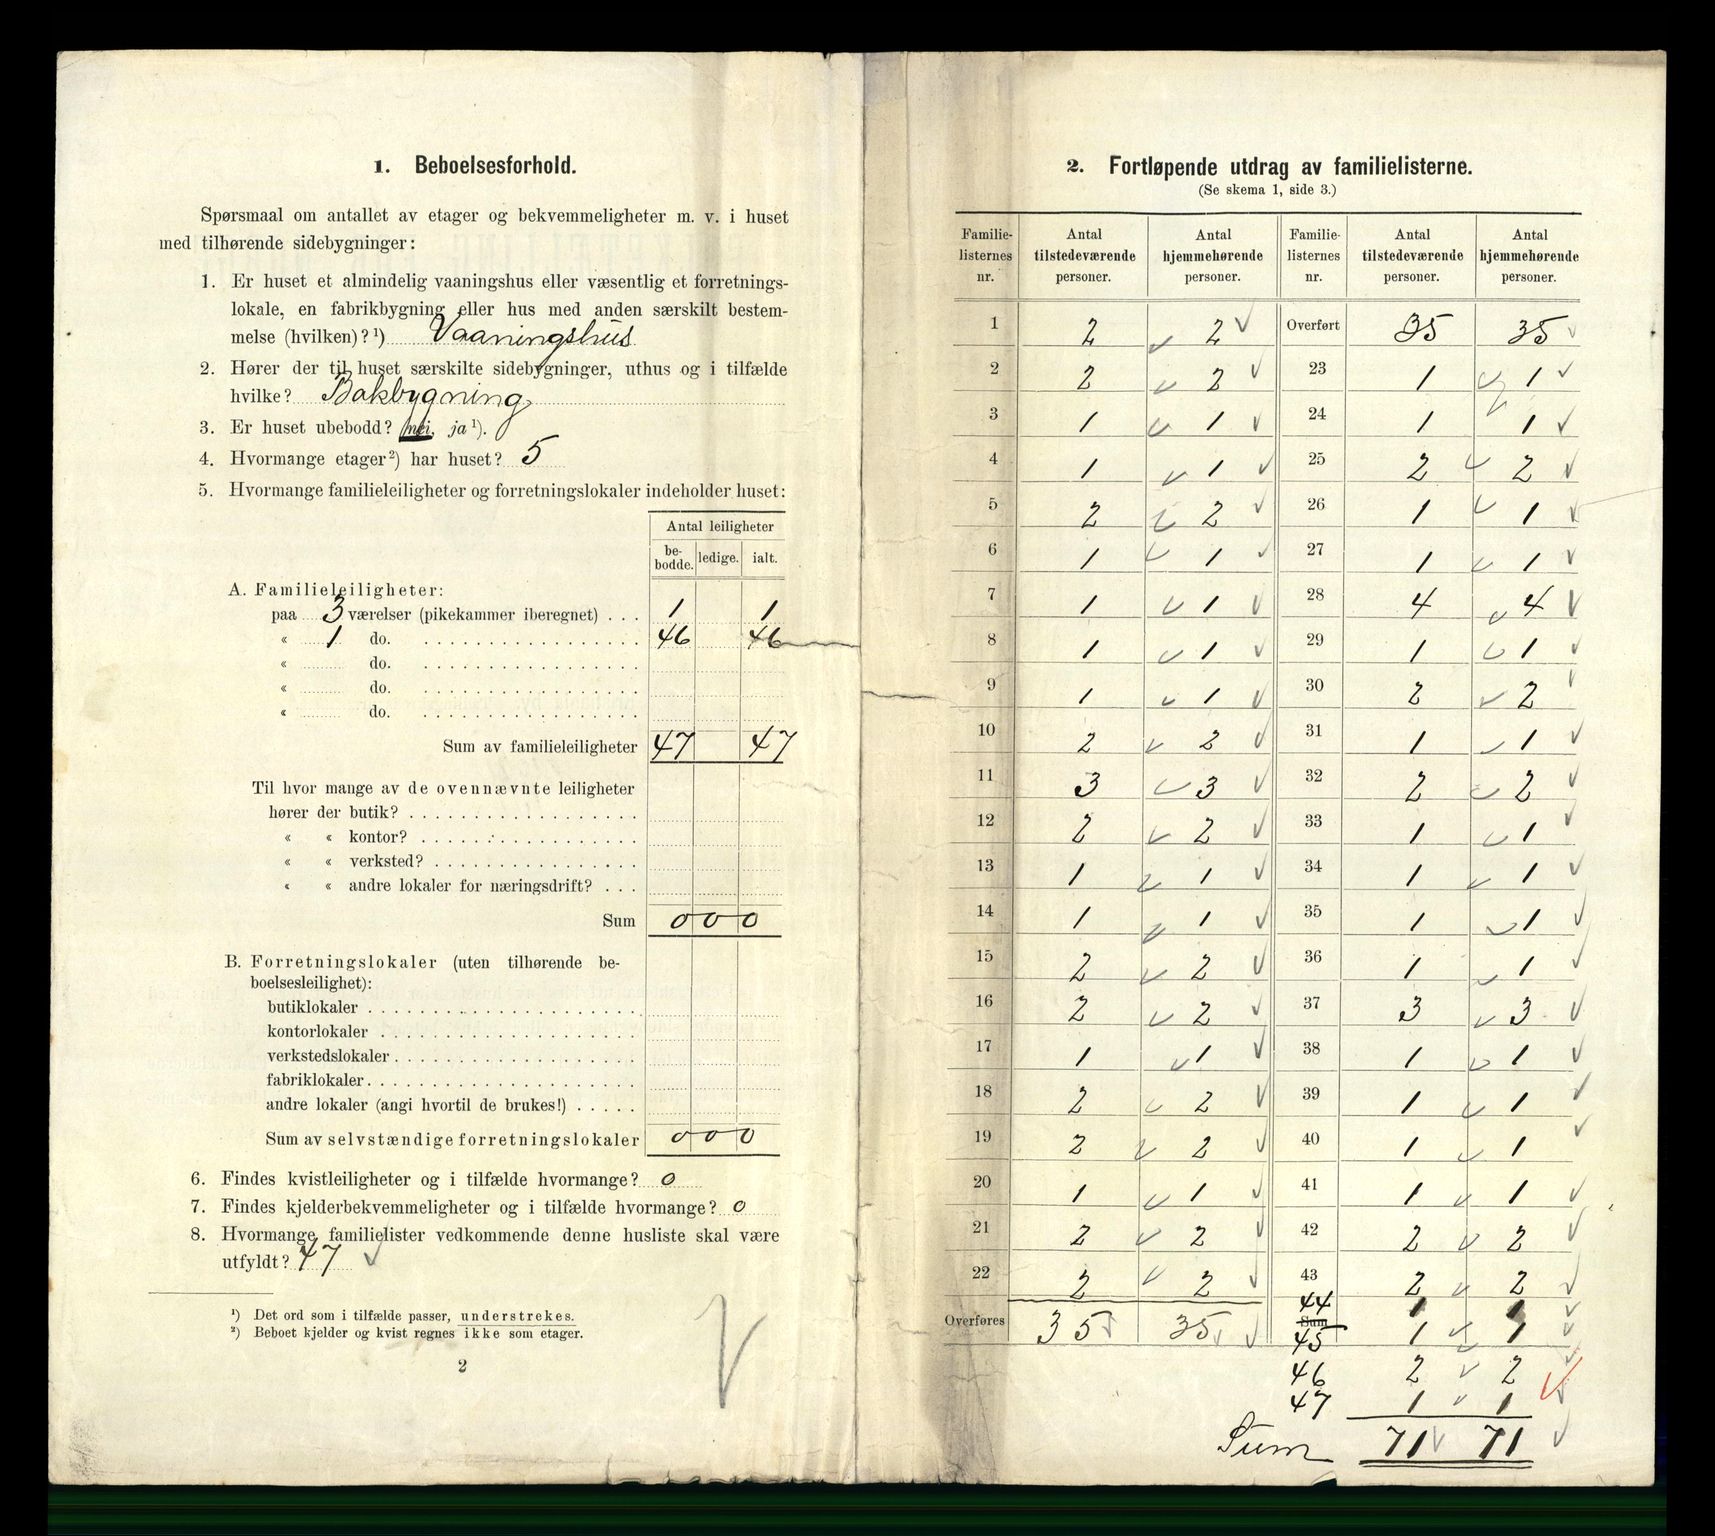 1. Beboelsesforhold.
Spørsmaal om antallet av etager og bekvemmeligheter m. v. i huset
med tilhørende sidebygninger:
1. Er huset et almindelig vaaningshus eller væsentlig et forretnings-
lokale, en fabrikbygning eller hus med anden særskilt bestem-
melse (hvilken)?¹) Vaaningshus
2. Hører der til huset særskilte sidebygninger, uthus og i tilfælde
hvilke? Bakbygning
3. Er huset ubebodd? nei, ja¹).
4. Hvormange etager²) har huset? 5
5. Hvormange familieleiligheter og forretningslokaler indeholder huset:
Antal leiligheter
be-
bodde. ledige. ialt.
A. Familieleiligheter:
paa 3 værelser (pikekammer iberegnet) . . . 1 1
« 1 do. 46 46
« do.
« do.
« do.
Sum av familieleiligheter 47 47
Til hvor mange av de ovennævnte leiligheter
hører der butik?
« « kontor?
« « verksted?
« « andre lokaler for næringsdrift? . . .
Sum 0 0 0
B. Forretningslokaler (uten tilhørende be-
boelsesleilighet):
butiklokaler
kontorlokaler
verkstedslokaler
fabriklokaler
andre lokaler (angi hvortil de brukes!)
Sum av selvstændige forretningslokaler 0 0 0
6. Findes kvistleiligheter og i tilfælde hvormange? 0
7. Findes kjelderbekvemmeligheter og i tilfælde hvormange? 0
8. Hvormange familielister vedkommende denne husliste skal være
utfyldt? 47 ✓
¹) Det ord som i tilfælde passer, understrekes.
²) Beboet kjelder og kvist regnes ikke som etager.
2
2. Fortløpende utdrag av familielisterne.
(Se skema 1, side 3.)
Familie-
listernes
nr. Antal
tilstedeværende
personer. Antal
hjemmehørende
personer. Familie-
listernes
nr. Antal
tilstedeværende
personer. Antal
hjemmehørende
personer.
1 2 2 Overført 35 35
2 2 2 23 1 1
3 1 1 24 1 1
4 1 1 25 2 2
5 2 2 26 1 1
6 1 1 27 1 1
7 1 1 28 4 4
8 1 1 29 1 1
9 1 1 30 2 2
10 2 2 31 1 1
11 3 3 32 2 2
12 2 2 33 1 1
13 1 1 34 1 1
14 1 1 35 1 1
15 2 2 36 1 1
16 2 2 37 3 3
17 1 1 38 1 1
18 2 2 39 1 1
19 2 2 40 1 1
20 1 1 41 1 1
21 2 2 42 2 2
22 2 2 43 2 2
44 1 1
Overføres 35 35 Sum
45 1 1
46 2 2
47 1 1
Sum 71 71